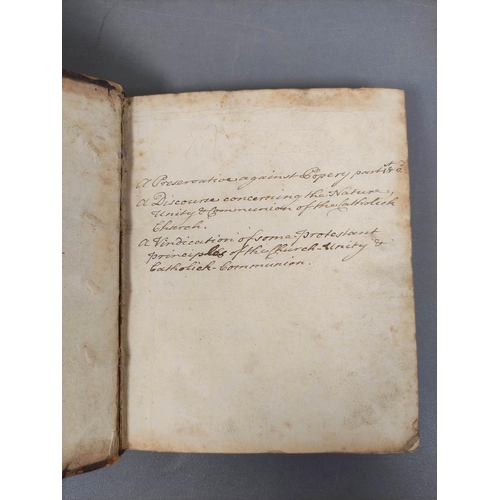 A Preservative against Popery part 1st &c
A Discourse concerning the Nature,
Unity & Communion of the Catholick
Church.
A Vindication of some Protestant
principles of the Church-Unity &
Catholick-Communion.